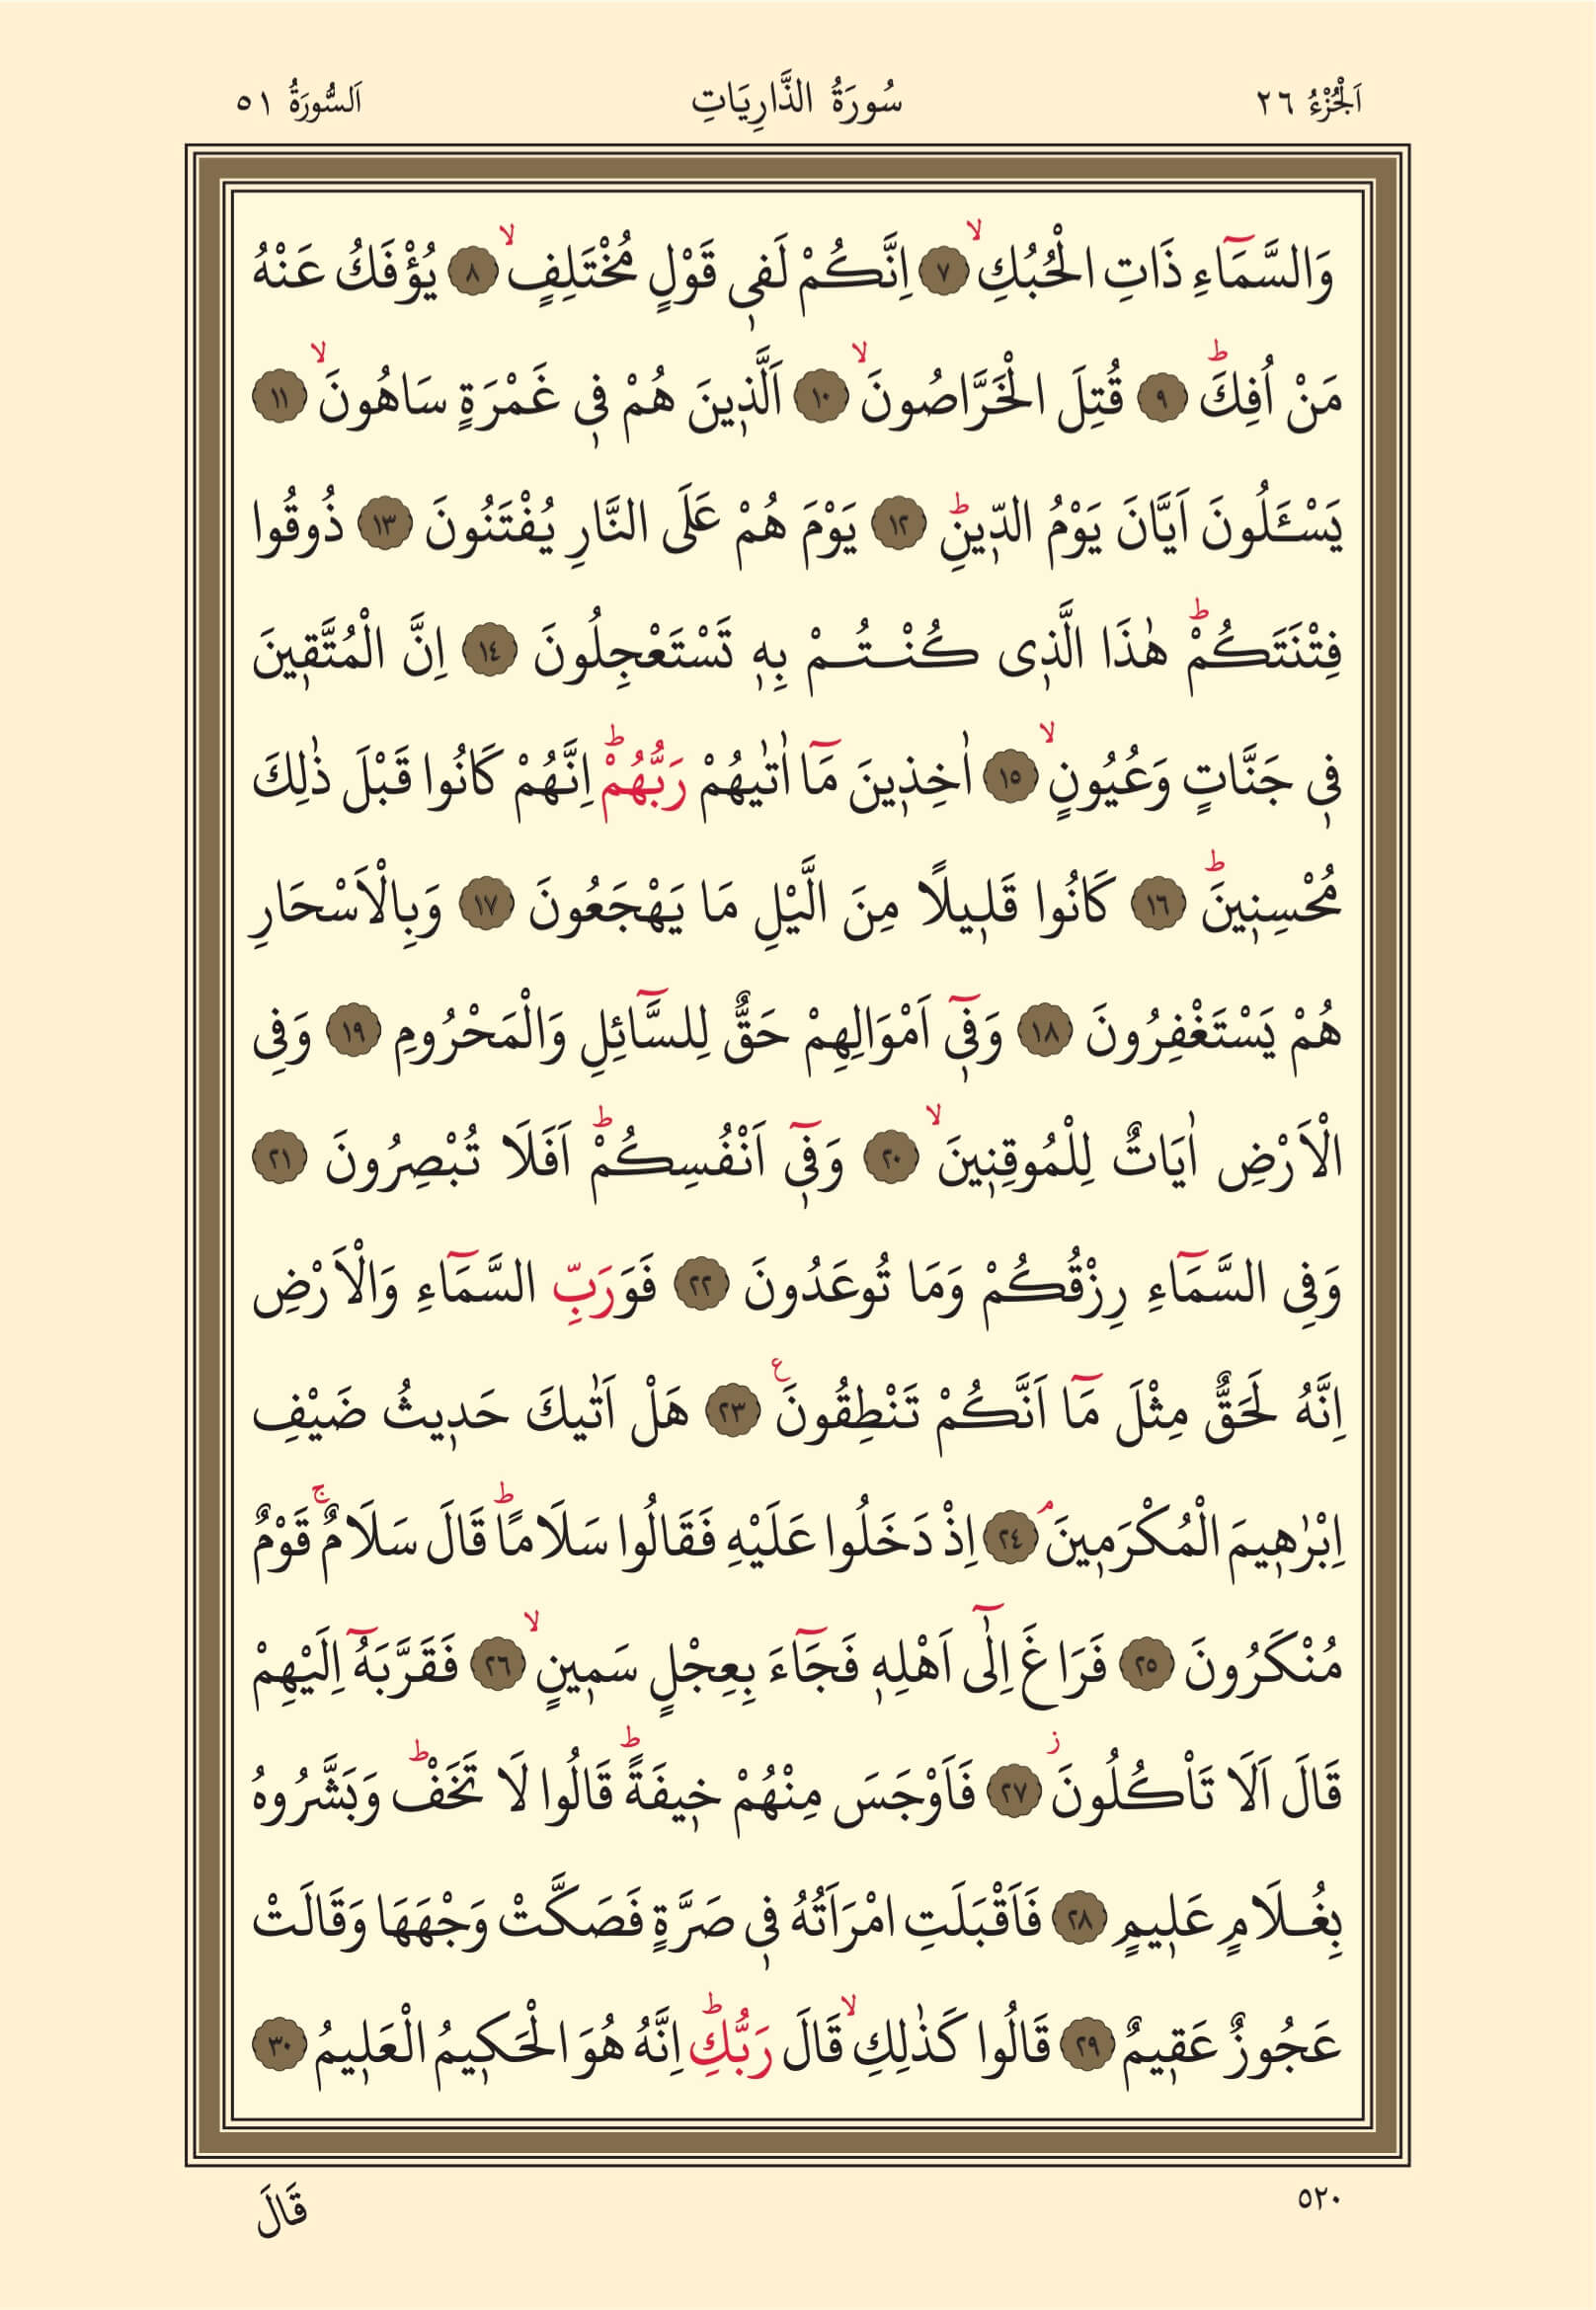 اَلْجُزْءُ ٢٦ سُورَةُ الذَّارِيَاتِ اَلسُّورَةُ ٥١
وَالسَّمَٓاءِ ذَاتِ الْحُبُكِۙ ﴿٧﴾ اِنَّكُمْ لَف۪ي قَوْلٍ مُخْتَلِفٍۙ ﴿٨﴾ يُؤْفَكُ عَنْهُ
مَنْ اُفِكَۜ ﴿٩﴾ قُتِلَ الْخَرَّاصُونَۙ ﴿١٠﴾ اَلَّذ۪ينَ هُمْ ف۪ي غَمْرَةٍ سَاهُونَۙ ﴿١١﴾
يَسْـَٔلُونَ اَيَّانَ يَوْمُ الدّ۪ينِۜ ﴿١٢﴾ يَوْمَ هُمْ عَلَى النَّارِ يُفْتَنُونَ ﴿١٣﴾ ذُوقُوا
فِتْنَتَكُمْۜ هٰذَا الَّذ۪ي كُنْتُمْ بِه۪ تَسْتَعْجِلُونَ ﴿١٤﴾ اِنَّ الْمُتَّق۪ينَ
ف۪ي جَنَّاتٍ وَعُيُونٍۙ ﴿١٥﴾ اٰخِذ۪ينَ مَٓا اٰتٰيهُمْ رَبُّهُمْۜ اِنَّهُمْ كَانُوا قَبْلَ ذٰلِكَ
مُحْسِن۪ينَۜ ﴿١٦﴾ كَانُوا قَل۪يلًا مِنَ الَّيْلِ مَا يَهْجَعُونَ ﴿١٧﴾ وَبِالْاَسْحَارِ
هُمْ يَسْتَغْفِرُونَ ﴿١٨﴾ وَف۪ٓي اَمْوَالِهِمْ حَقٌّ لِلسَّٓائِلِ وَالْمَحْرُومِ ﴿١٩﴾ وَفِي
الْاَرْضِ اٰيَاتٌ لِلْمُوقِن۪ينَۙ ﴿٢٠﴾ وَف۪ٓي اَنْفُسِكُمْۜ اَفَلَا تُبْصِرُونَ ﴿٢١﴾
وَفِي السَّمَٓاءِ رِزْقُكُمْ وَمَا تُوعَدُونَ ﴿٢٢﴾ فَوَرَبِّ السَّمَٓاءِ وَالْاَرْضِ
اِنَّهُ لَحَقٌّ مِثْلَ مَٓا اَنَّكُمْ تَنْطِقُونَ۟ ﴿٢٣﴾ هَلْ اَتٰيكَ حَد۪يثُ ضَيْفِ
اِبْرٰه۪يمَ الْمُكْرَم۪ينَۢ ﴿٢٤﴾ اِذْ دَخَلُوا عَلَيْهِ فَقَالُوا سَلَامًاۜ قَالَ سَلَامٌۚ قَوْمٌ
مُنْكَرُونَ ﴿٢٥﴾ فَرَاغَ اِلٰٓى اَهْلِه۪ فَجَٓاءَ بِعِجْلٍ سَم۪ينٍۙ ﴿٢٦﴾ فَقَرَّبَهُٓ اِلَيْهِمْ
قَالَ اَلَا تَاْكُلُونَۘ ﴿٢٧﴾ فَاَوْجَسَ مِنْهُمْ خ۪يفَةًۜ قَالُوا لَا تَخَفْۜ وَبَشَّرُوهُ
بِغُلَامٍ عَل۪يمٍ ﴿٢٨﴾ فَاَقْبَلَتِ امْرَاَتُهُ ف۪ي صَرَّةٍ فَصَكَّتْ وَجْهَهَا وَقَالَتْ
عَجُوزٌ عَق۪يمٌ ﴿٢٩﴾ قَالُوا كَذٰلِكِۙ قَالَ رَبُّكِۜ اِنَّهُ هُوَ الْحَك۪يمُ الْعَل۪يمُ ﴿٣٠﴾
٥٢٠ قَالَ